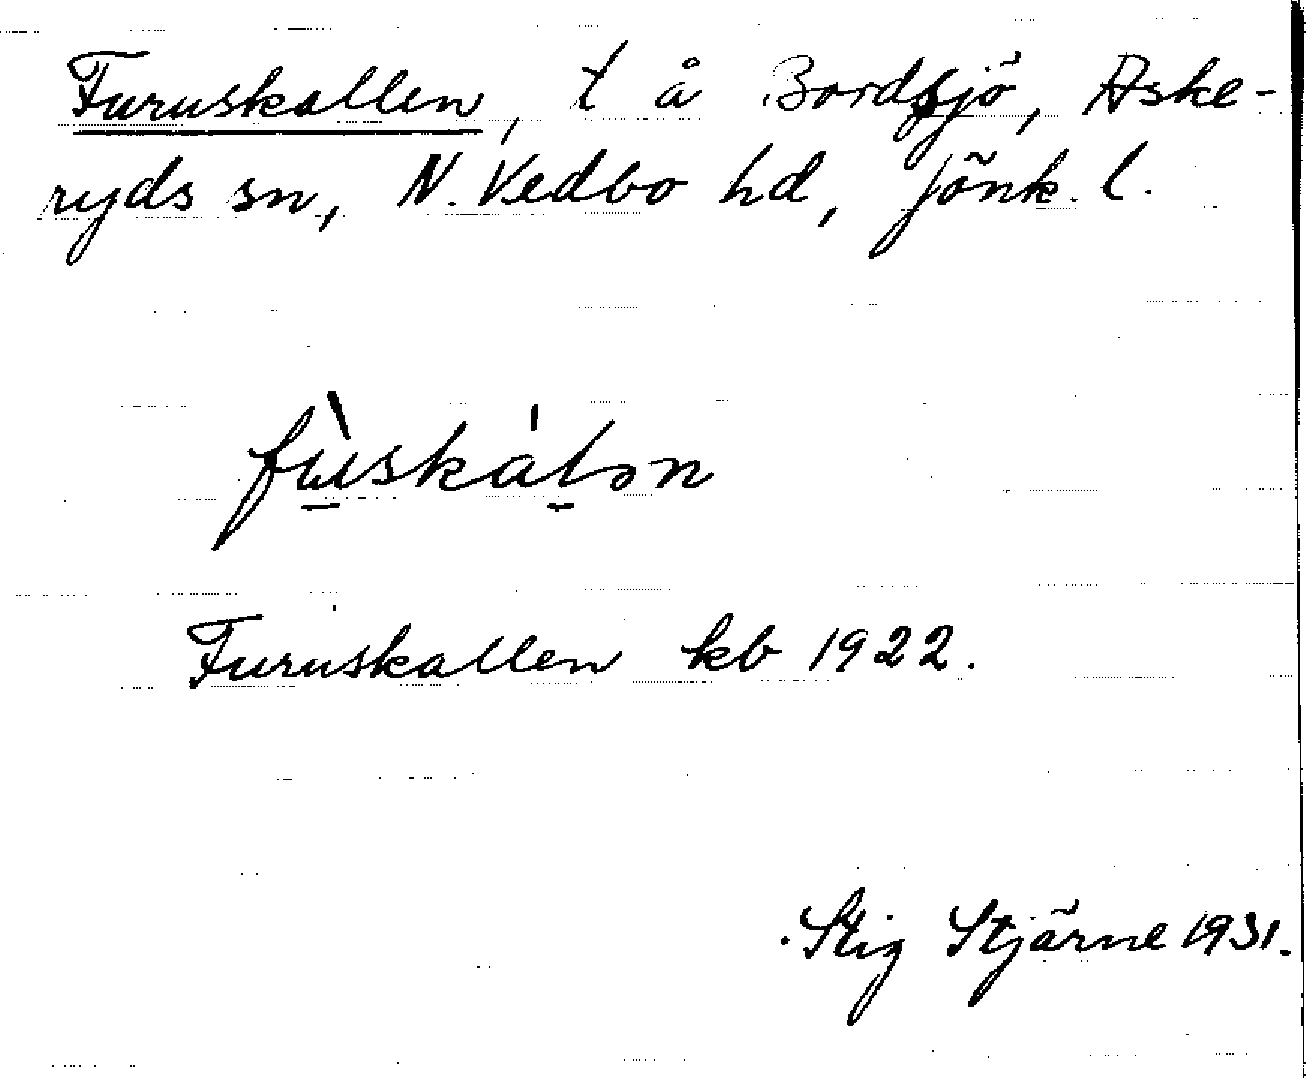 Furuskallen, t å Bordsjö, Aske-
ryds sn, N. Vedbo hd, Jönk. l.
Furuskallen kb 1922.
Stig Stjärne 1931.